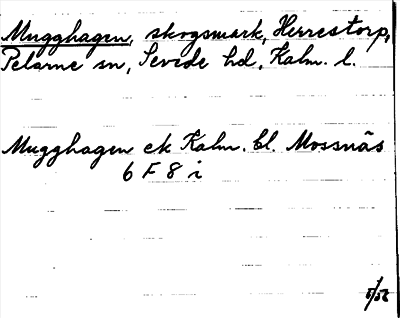 Mugghagen, skogsmark, Herrestorp,
Pelarne sn, Sevede hd, Kalm. l.
Mugghagen ek Kalm. bl. Mossnäs
6 F 8 i
5/52